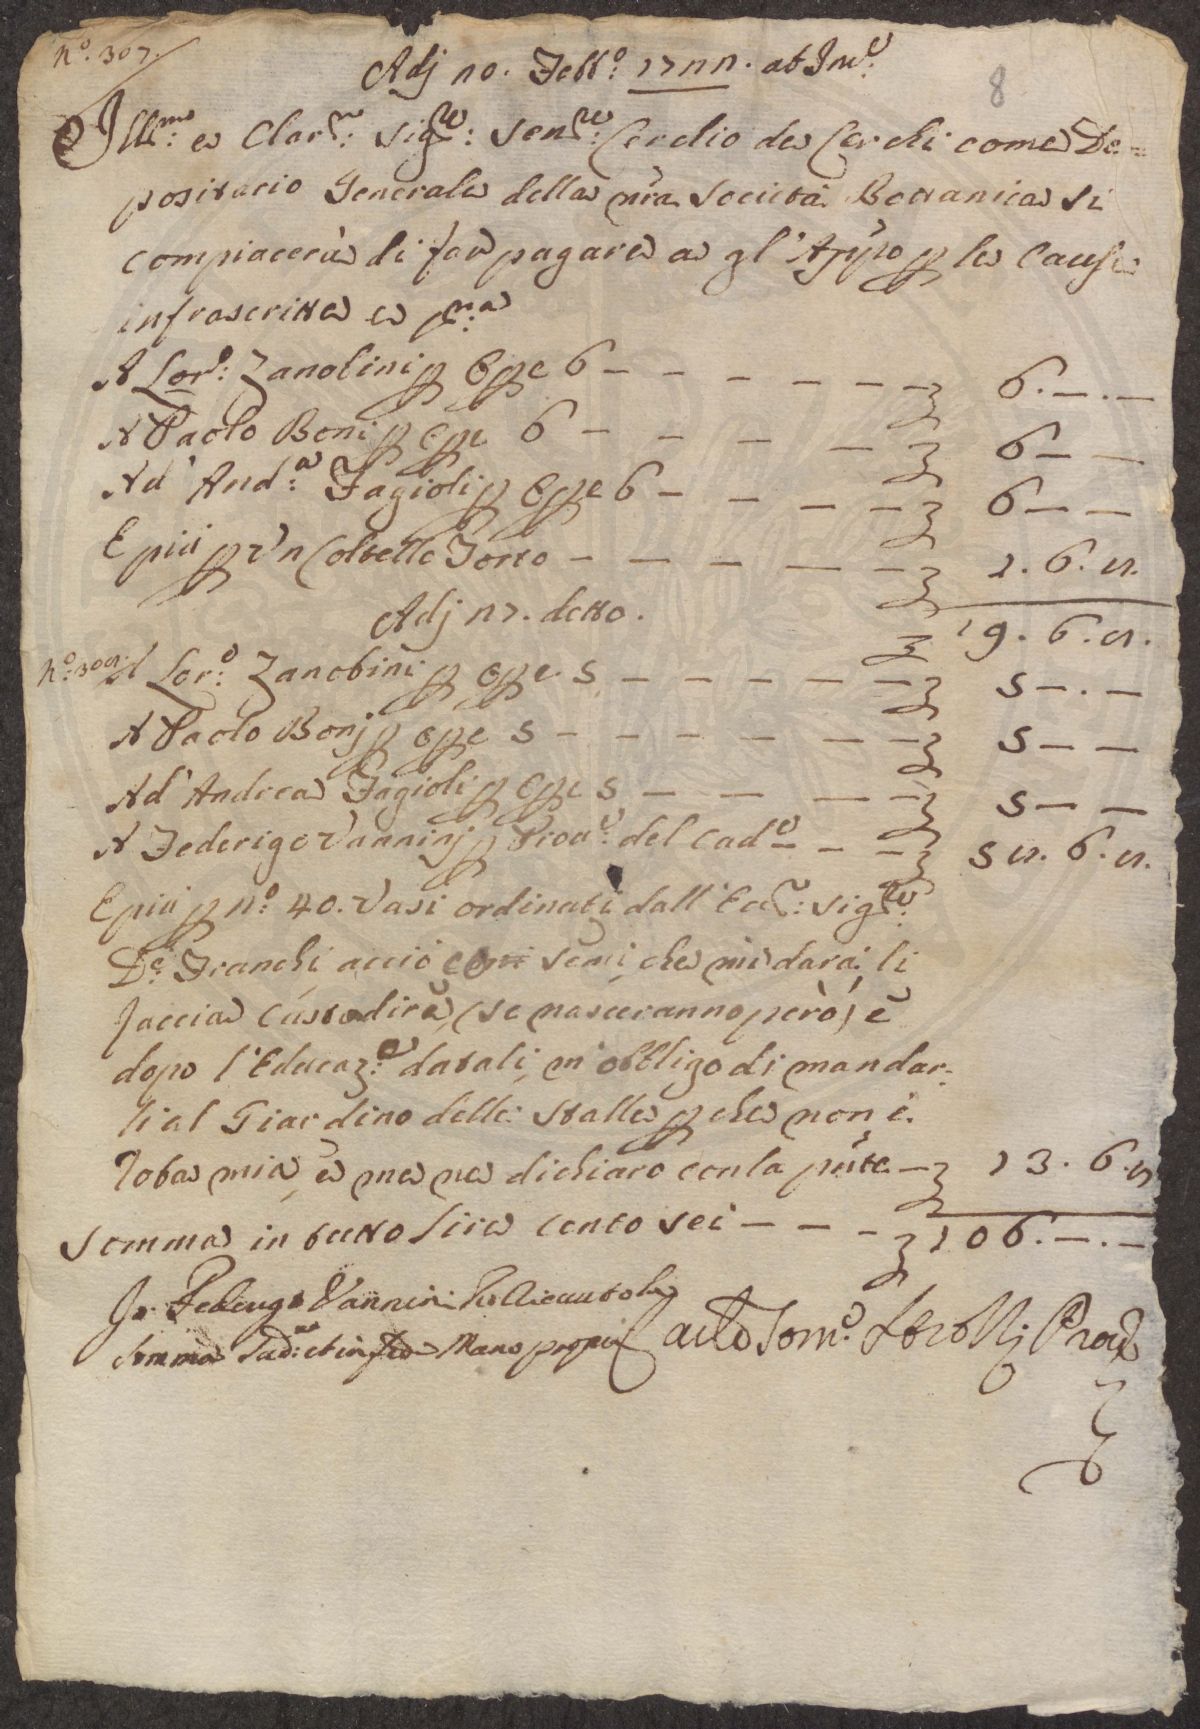 N.º 307
Adj 10. Febb.º 1722. ab Inc.e
8
Ill.mo e Clar.mo Sig.re Sen.re Cerchio de Cerchi come De=
positario Generale della nra Società Bottanica si
compiacerà di far pagare a gl'Appo p le Cause
infrascritte e p.ma
A Lor.o Zanobini p Ope 6 - - - - - - 6.-.-
A Paolo Boni p ope 6 - - - - 6 - -
Ad' And.a Fagioli p Ope 6 - - - - 6 - -
E più p Un Coltello Torto - - - - - 1. 6. 8.
Adj 17. detto. 19. 6. 8.
N.º 308 A Lor.o Zanobini p ope 5 - - - - - 5 -.-
A Paolo Bonj p ope 5 - - - - - - 5 - -
Ad' Andrea Fagioli p Ope 5 - - - - 5 - -
A Federigo Vanninj p Prou.e del cad.e - - - 58. 6. 8.
E più p n.º 40. Vasi ordinati dall' Ecc.mo Sig.re
De Franchi, acciò con semi, che mi darà, li
faccia custodire, (se nasceranno però) e
dopo l'Educaz.e datali, m'obbligo di mandar=
li al Giardino delle Stalle p che non è
roba mia, e me ne dichiaro con la pnte - 13. 6. 8
Somma in tutto lire cento sei - - - - 106.-.-
Jo Federigo Vannini ho riceuuto la
somma sud.a et in fede Mano propia